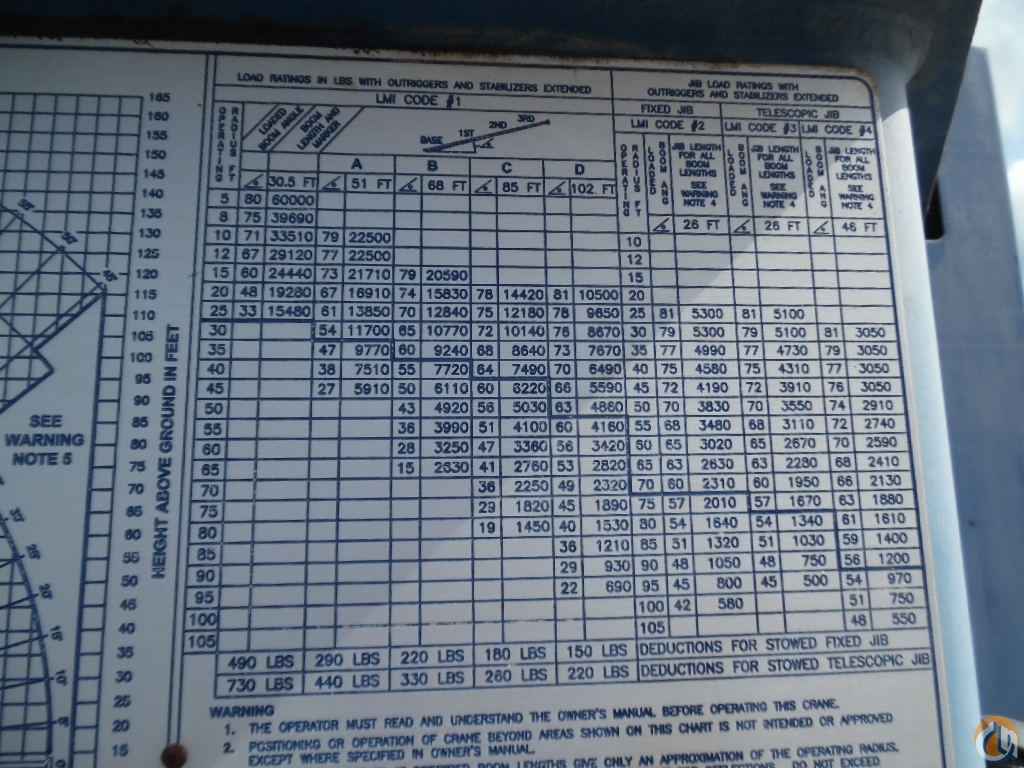 LOAD RATINGS IN LBS. WITH OUTRIGGERS AND STABILIZERS EXTENDED
LMI CODE #1
OPERATING RADIUS FT
LOADED BOOM ANGLE
BOOM LENGTH AND MARKER
BASE 1ST 2ND 3RD
A B C D
30.5 FT 51 FT 68 FT 85 FT 102 FT
5 80 60000
8 75 39690
10 71 33510 79 22500
12 67 29120 77 22500
15 60 24440 73 21710 79 20590
20 48 19280 67 16910 74 15830 78 14420 81 10500
25 33 15480 61 13850 70 12840 75 12180 78 9650
30 54 11700 65 10770 72 10140 76 8670
35 47 9770 60 9240 68 8640 73 7670
40 38 7510 55 7720 64 7490 70 6490
45 27 5910 50 6110 60 6220 66 5590
50 43 4920 56 5030 63 4860
55 36 3990 51 4100 60 4160
60 28 3250 47 3360 56 3420
65 15 2630 41 2760 53 2820
70 36 2250 49 2320
75 29 1820 45 1890
80 19 1450 40 1530
85 36 1210
90 29 930
95 22 690
100
105
JIB LOAD RATINGS WITH
OUTRIGGERS AND STABILIZERS EXTENDED
FIXED JIB TELESCOPIC JIB
LMI CODE #2 LMI CODE #3 LMI CODE #4
OPERATING RADIUS FT
LOADED BOOM ANG
JIB LENGTH FOR ALL BOOM LENGTHS SEE WARNING NOTE 4
LOADED BOOM ANG
JIB LENGTH FOR ALL BOOM LENGTHS SEE WARNING NOTE 4
LOADED BOOM ANG
JIB LENGTH FOR ALL BOOM LENGTHS SEE WARNING NOTE 4
26 FT 26 FT 46 FT
10
12
15
20
25 81 5300 81 5100
30 79 5300 79 5100 81 3050
35 77 4990 77 4730 79 3050
40 75 4580 75 4310 77 3050
45 72 4190 72 3910 76 3050
50 70 3830 70 3550 74 2910
55 68 3480 68 3110 72 2740
60 65 3020 65 2670 70 2590
65 63 2630 63 2280 68 2410
70 60 2310 60 1950 66 2130
75 57 2010 57 1670 63 1880
80 54 1640 54 1340 61 1610
85 51 1320 51 1030 59 1400
90 48 1050 48 750 56 1200
95 45 800 45 500 54 970
100 42 580 51 750
105 48 550
490 LBS 290 LBS 220 LBS 180 LBS 150 LBS DEDUCTIONS FOR STOWED FIXED JIB
730 LBS 440 LBS 330 LBS 260 LBS 220 LBS DEDUCTIONS FOR STOWED TELESCOPIC JIB
WARNING
1. THE OPERATOR MUST READ AND UNDERSTAND THE OWNER'S MANUAL BEFORE OPERATING THIS CRANE.
2. POSITIONING OR OPERATION OF CRANE BEYOND AREAS SHOWN ON THIS CHART IS NOT INTENDED OR APPROVED
EXCEPT WHERE SPECIFIED IN OWNER'S MANUAL.
BOOM LENGTHS GIVE ONLY AN APPROXIMATION OF THE OPERATING RADIUS.
DO NOT EXCEED
165
160
155
150
145
140
135
130
125
120
115
110
105
100
95
90
85
80
75
70
65
60
55
50
45
40
35
30
25
20
15
HEIGHT ABOVE GROUND IN FEET
SEE
WARNING
NOTE 5